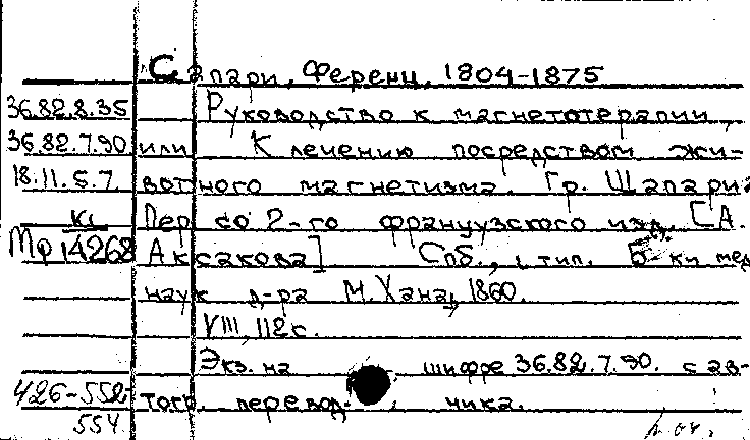 Сапари, Ференц, 1804-1875
36.82.8.35 Руководство к магнетотерапии,
36.82.7.90 или К лечению посредством жи-
18.11.5.7. вотного магнетизма. Гр. Шапари
кс Пер со 2-го французского изд. [А.
Мф 14268 Аксакова] Спб., тип. Б-ки мед
наук д-ра М. Хана, 1860.
VIII, 112 с.
Экз. на шифре 36.82.7.90. с ав-
426-552 тогр. перевод- чика.
554